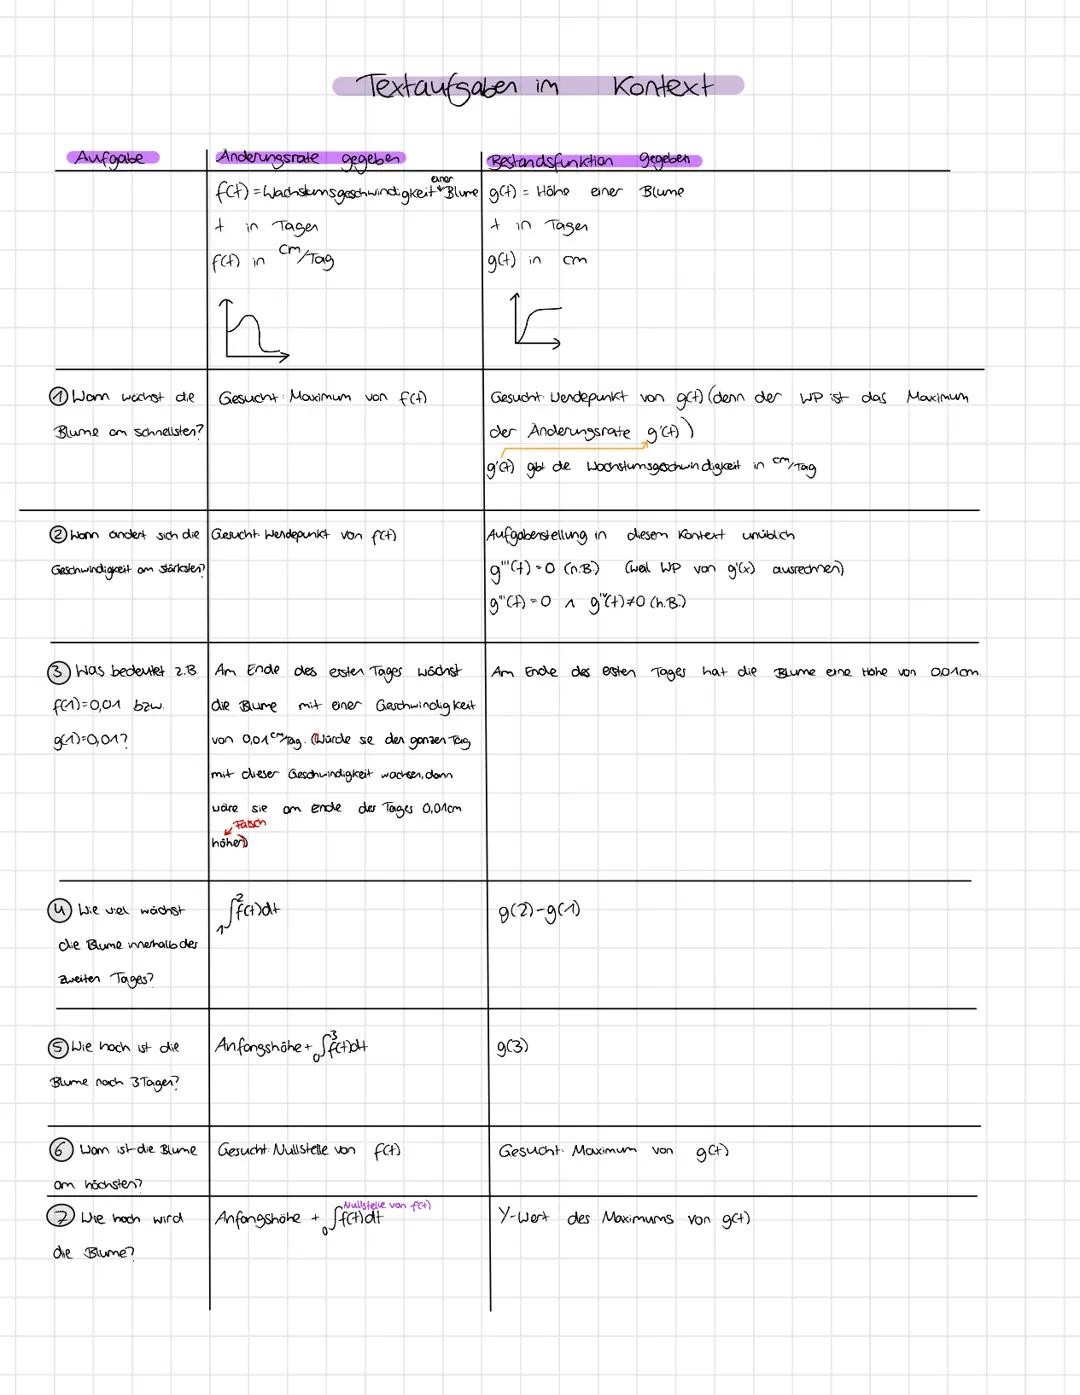 Textaufgaben im Kontext
Aufgabe
Änderungsrate gegeben
Bestandsfunktion gegeben
f(t) = Wachstumsgeschwindigkeit einer Blume
t in Tagen
f(t) in cm/Tag
g(t) = Höhe einer Blume
t in Tagen
g(t) in cm
① Wann wächst die
Blume am schnellsten?
Gesucht: Maximum von f(t)
Gesucht: Wendepunkt von g(t) (denn der WP ist das Maximum
der Änderungsrate g'(t))
g'(t) gibt die Wachstumsgeschwindigkeit in cm/Tag
② Wann ändert sich die
Geschwindigkeit am stärksten?
Gesucht: Wendepunkt von f(t)
Aufgabenstellung in diesem Kontext unüblich
g'''(t) = 0 (n.B.) (weil WP von g'(x) ausrechnen)
g'''(t) = 0 ∧ g''''(t) ≠ 0 (h.B.)
③ Was bedeutet z.B.
f(1)=0,01 bzw.
g(1)=0,01?
Am Ende des ersten Tages wächst
die Blume mit einer Geschwindigkeit
von 0,01 cm/Tag. (Würde sie den ganzen Tag
mit dieser Geschwindigkeit wachsen, dann
wäre sie am ende des Tages 0,01cm
Falsch
höher)
Am Ende des ersten Tages hat die Blume eine Höhe von 0,01cm.
④ Wie viel wächst
die Blume innerhalb des
zweiten Tages?
₁∫² f(t)dt
g(2)-g(1)
⑤ Wie hoch ist die
Blume nach 3 Tagen?
Anfangshöhe + ₀∫³ f(t)dt
g(3)
⑥ Wann ist die Blume
am höchsten?
Gesucht: Nullstelle von f(t)
Gesucht: Maximum von g(t)
⑦ Wie hoch wird
die Blume?
Nullstelle von f(t)
Anfangshöhe + ₀∫ f(t)dt
Y-Wert des Maximums von g(t)